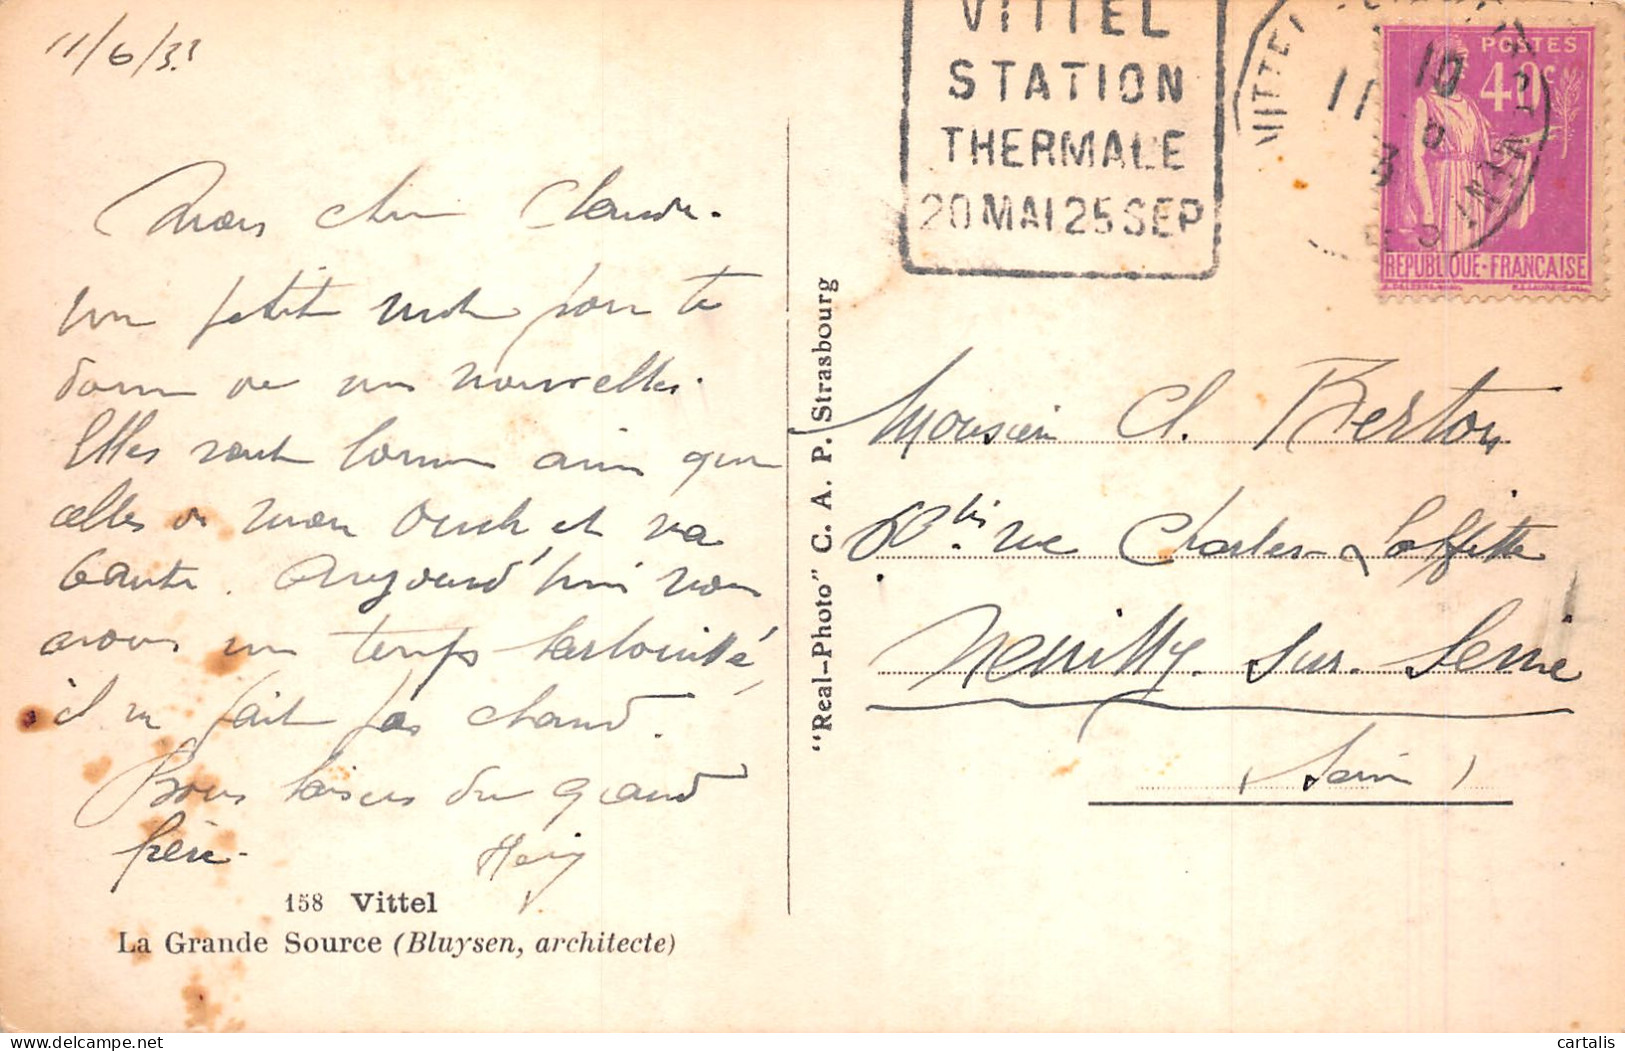 11/6/33
Mon cher Claude.
Un petit mot pour te
donner de mes nouvelles.
Elles sont bonnes ainsi que
celles de mon Oncle et ma
tante. Aujourd'hui nous
avons un temps
il ne fait pas chaud.
Bons baisers du grand
frère.
158 Vittel
La Grande Source (Bluysen, architecte)
"Real-Photo" C. A. P. Strasbourg
VITTEL
STATION
THERMALE
20 MAI 25 SEP
VITTEL
11 10
POSTES
40c
REPUBLIQUE-FRANCAISE
Monsieur Cl. Berton
60 bis rue Charles-Laffitte
Neuilly sur Seine
(Seine)
cartalis